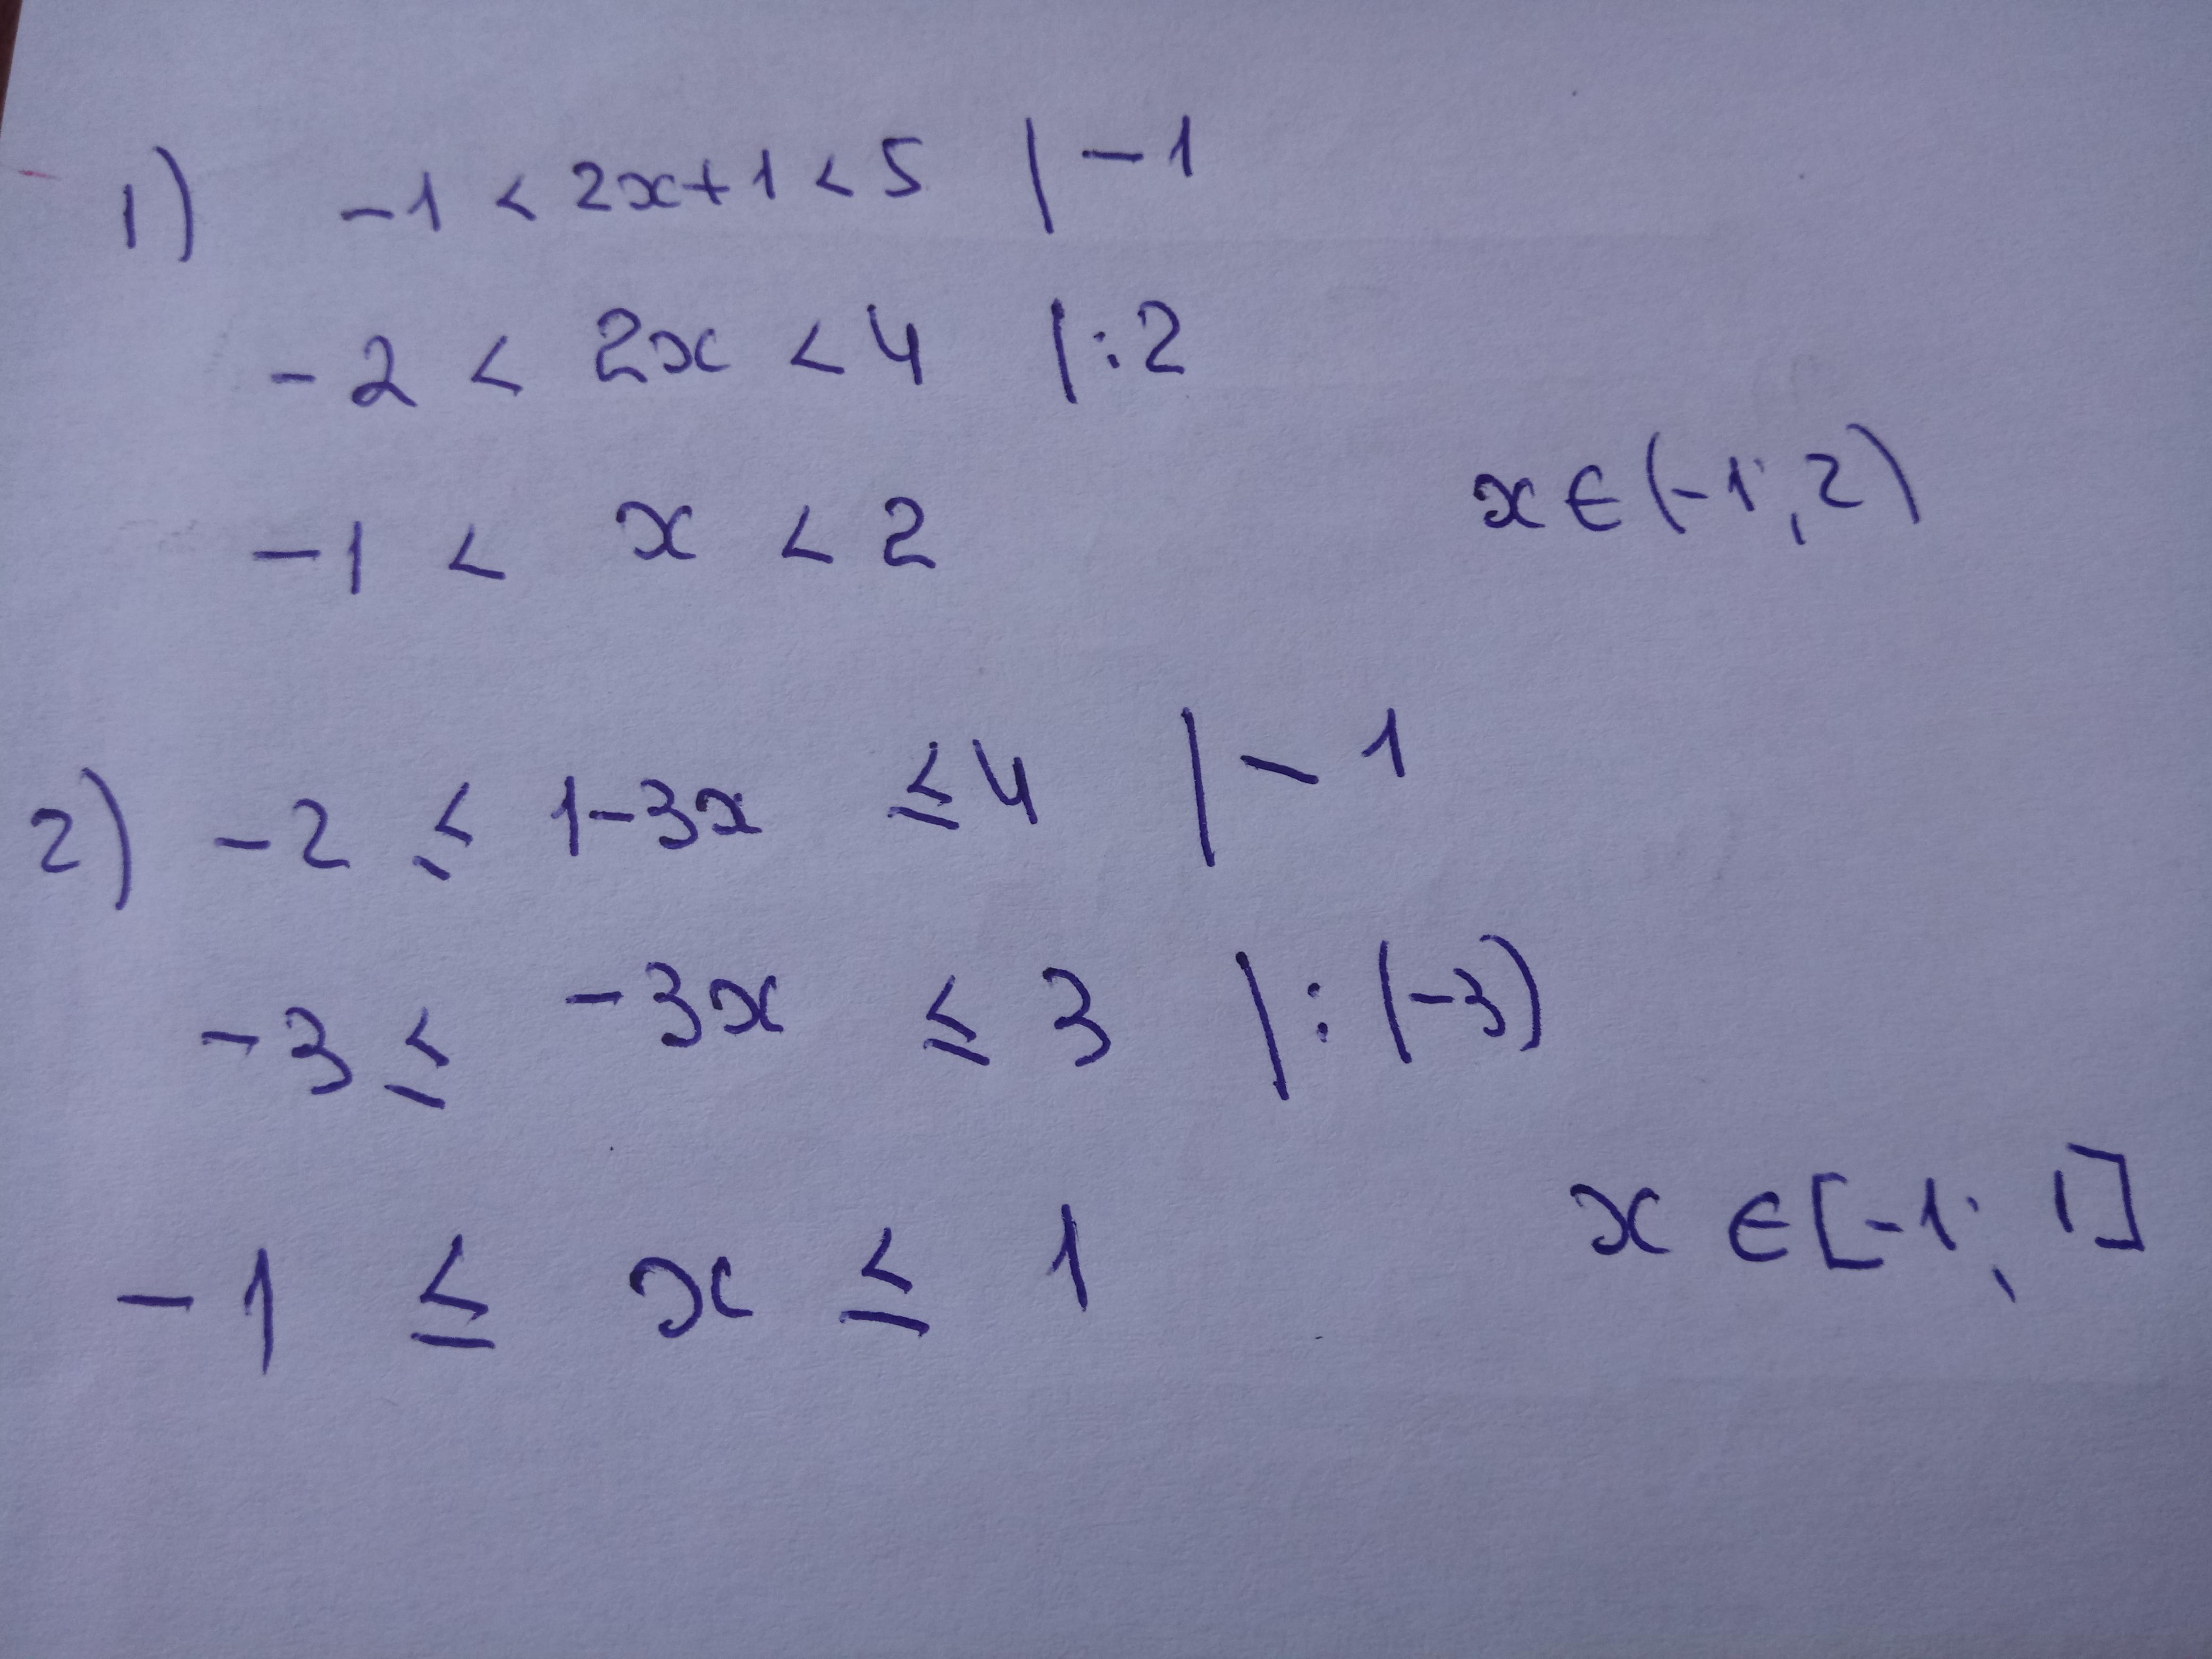 1) -1 < 2x+1 < 5 | -1
-2 < 2x < 4 |:2
-1 < x < 2 x∈(-1;2)
2) -2 ≤ 1-3x ≤ 4 | -1
-3 ≤ -3x ≤ 3 |:(-3)
-1 ≤ x ≤ 1 x∈[-1;1]